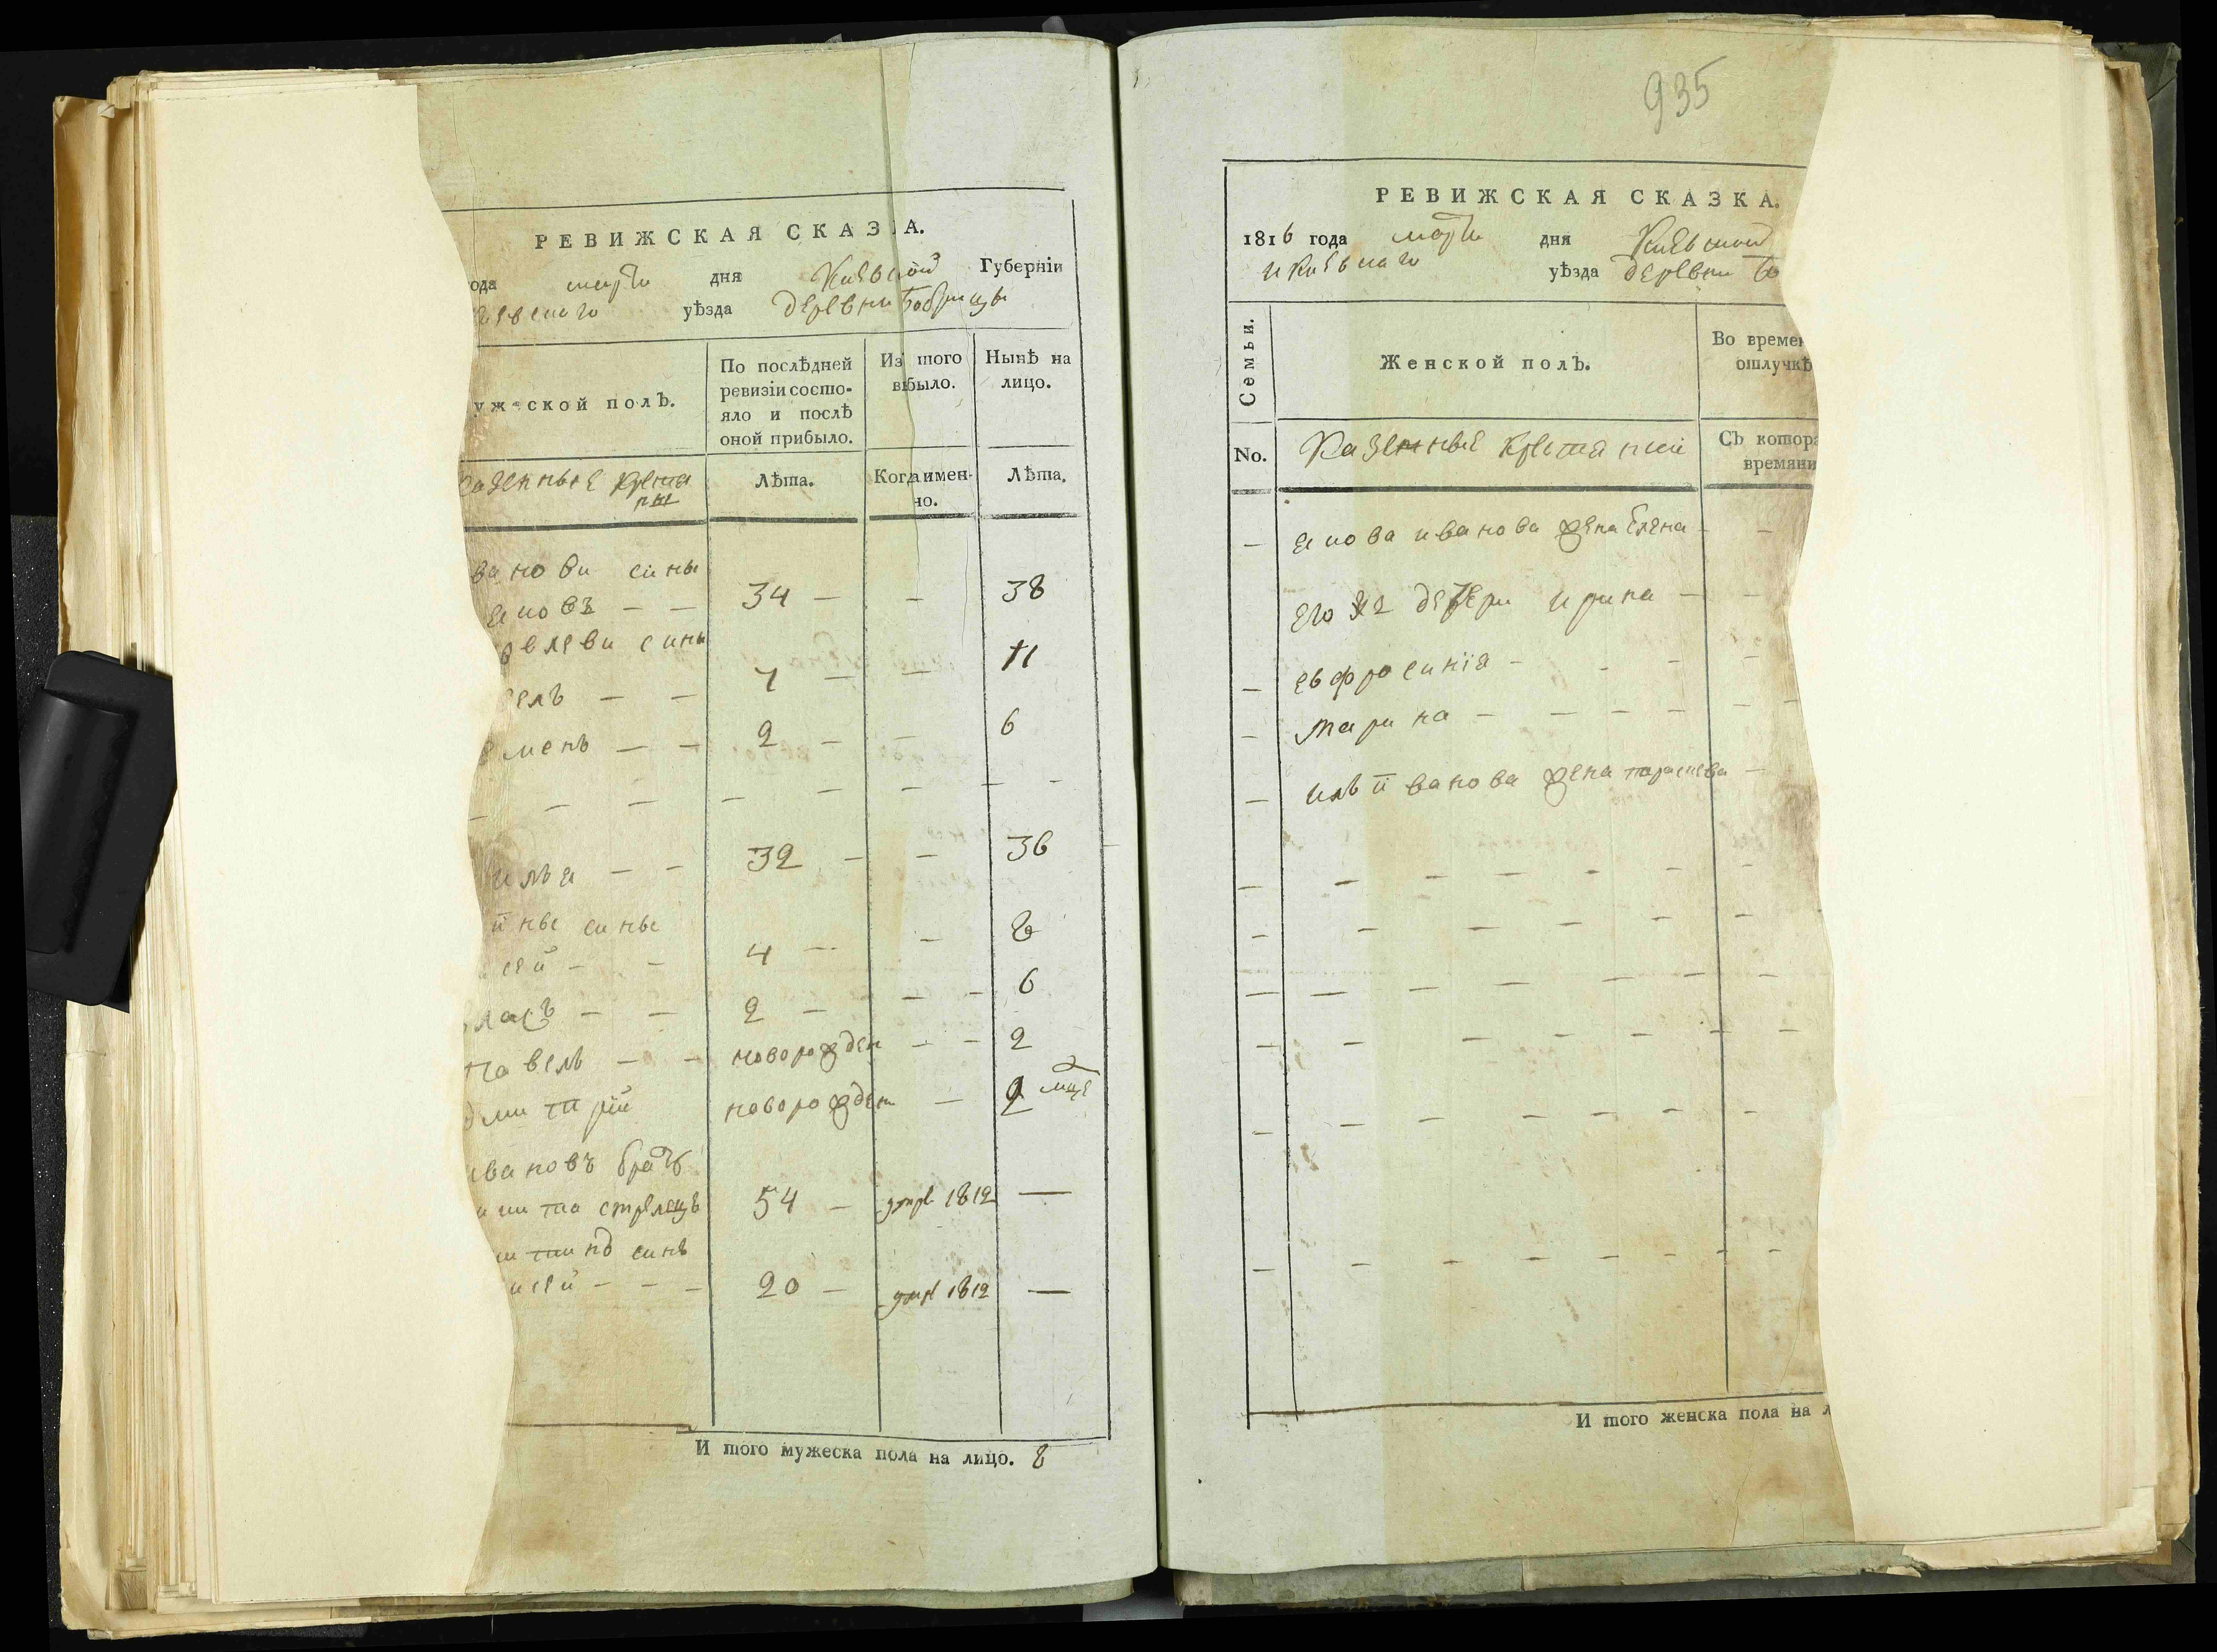 РЕВИЖСКАЯ СКАЗ А.
ода марта дня Киевской Губерніи
евскаго уѣзда деревни Бобрицы
ужеской полъ.
По послѣдней ревизіи состо-
яло и послѣ
оной прибыло.
Из того
выбыло.
Нынѣ на
лицо.
казенные крестя
не
Лѣта.
Когда имен-
но.
Лѣта.
вановы сины
яковъ — — 34 — — 38
овлеви сины
велъ — — 7 — — 11
емень — — 2 — — 6
илья — — 32 — — 36
ины сины
сей — — 4 — — 8
власъ — — 2 — — 6
павелъ — — новорожден — — 2
дмитрій новорожден — 2 мце
ивановъ братъ
икита стрелецъ 54 — умре 1812 —
синъ
исей — — — 20 — умре 1812 —
И того мужеска пола на лицо. 8
935
РЕВИЖСКАЯ СКАЗКА.
1816 года марта дня Киевской
и Киевскаго уѣзда деревни Бо
Семьи.
Женской полъ.
Во времен
отлучкѣ
No.
Казенные крестяни
Съ котор
времяни
— якова иванова жена Елена — —
его дочери ирина — —
— евфросинія — — — —
— марина — — — — — —
— ильи иванова жена параскева —
И того женска пола на л